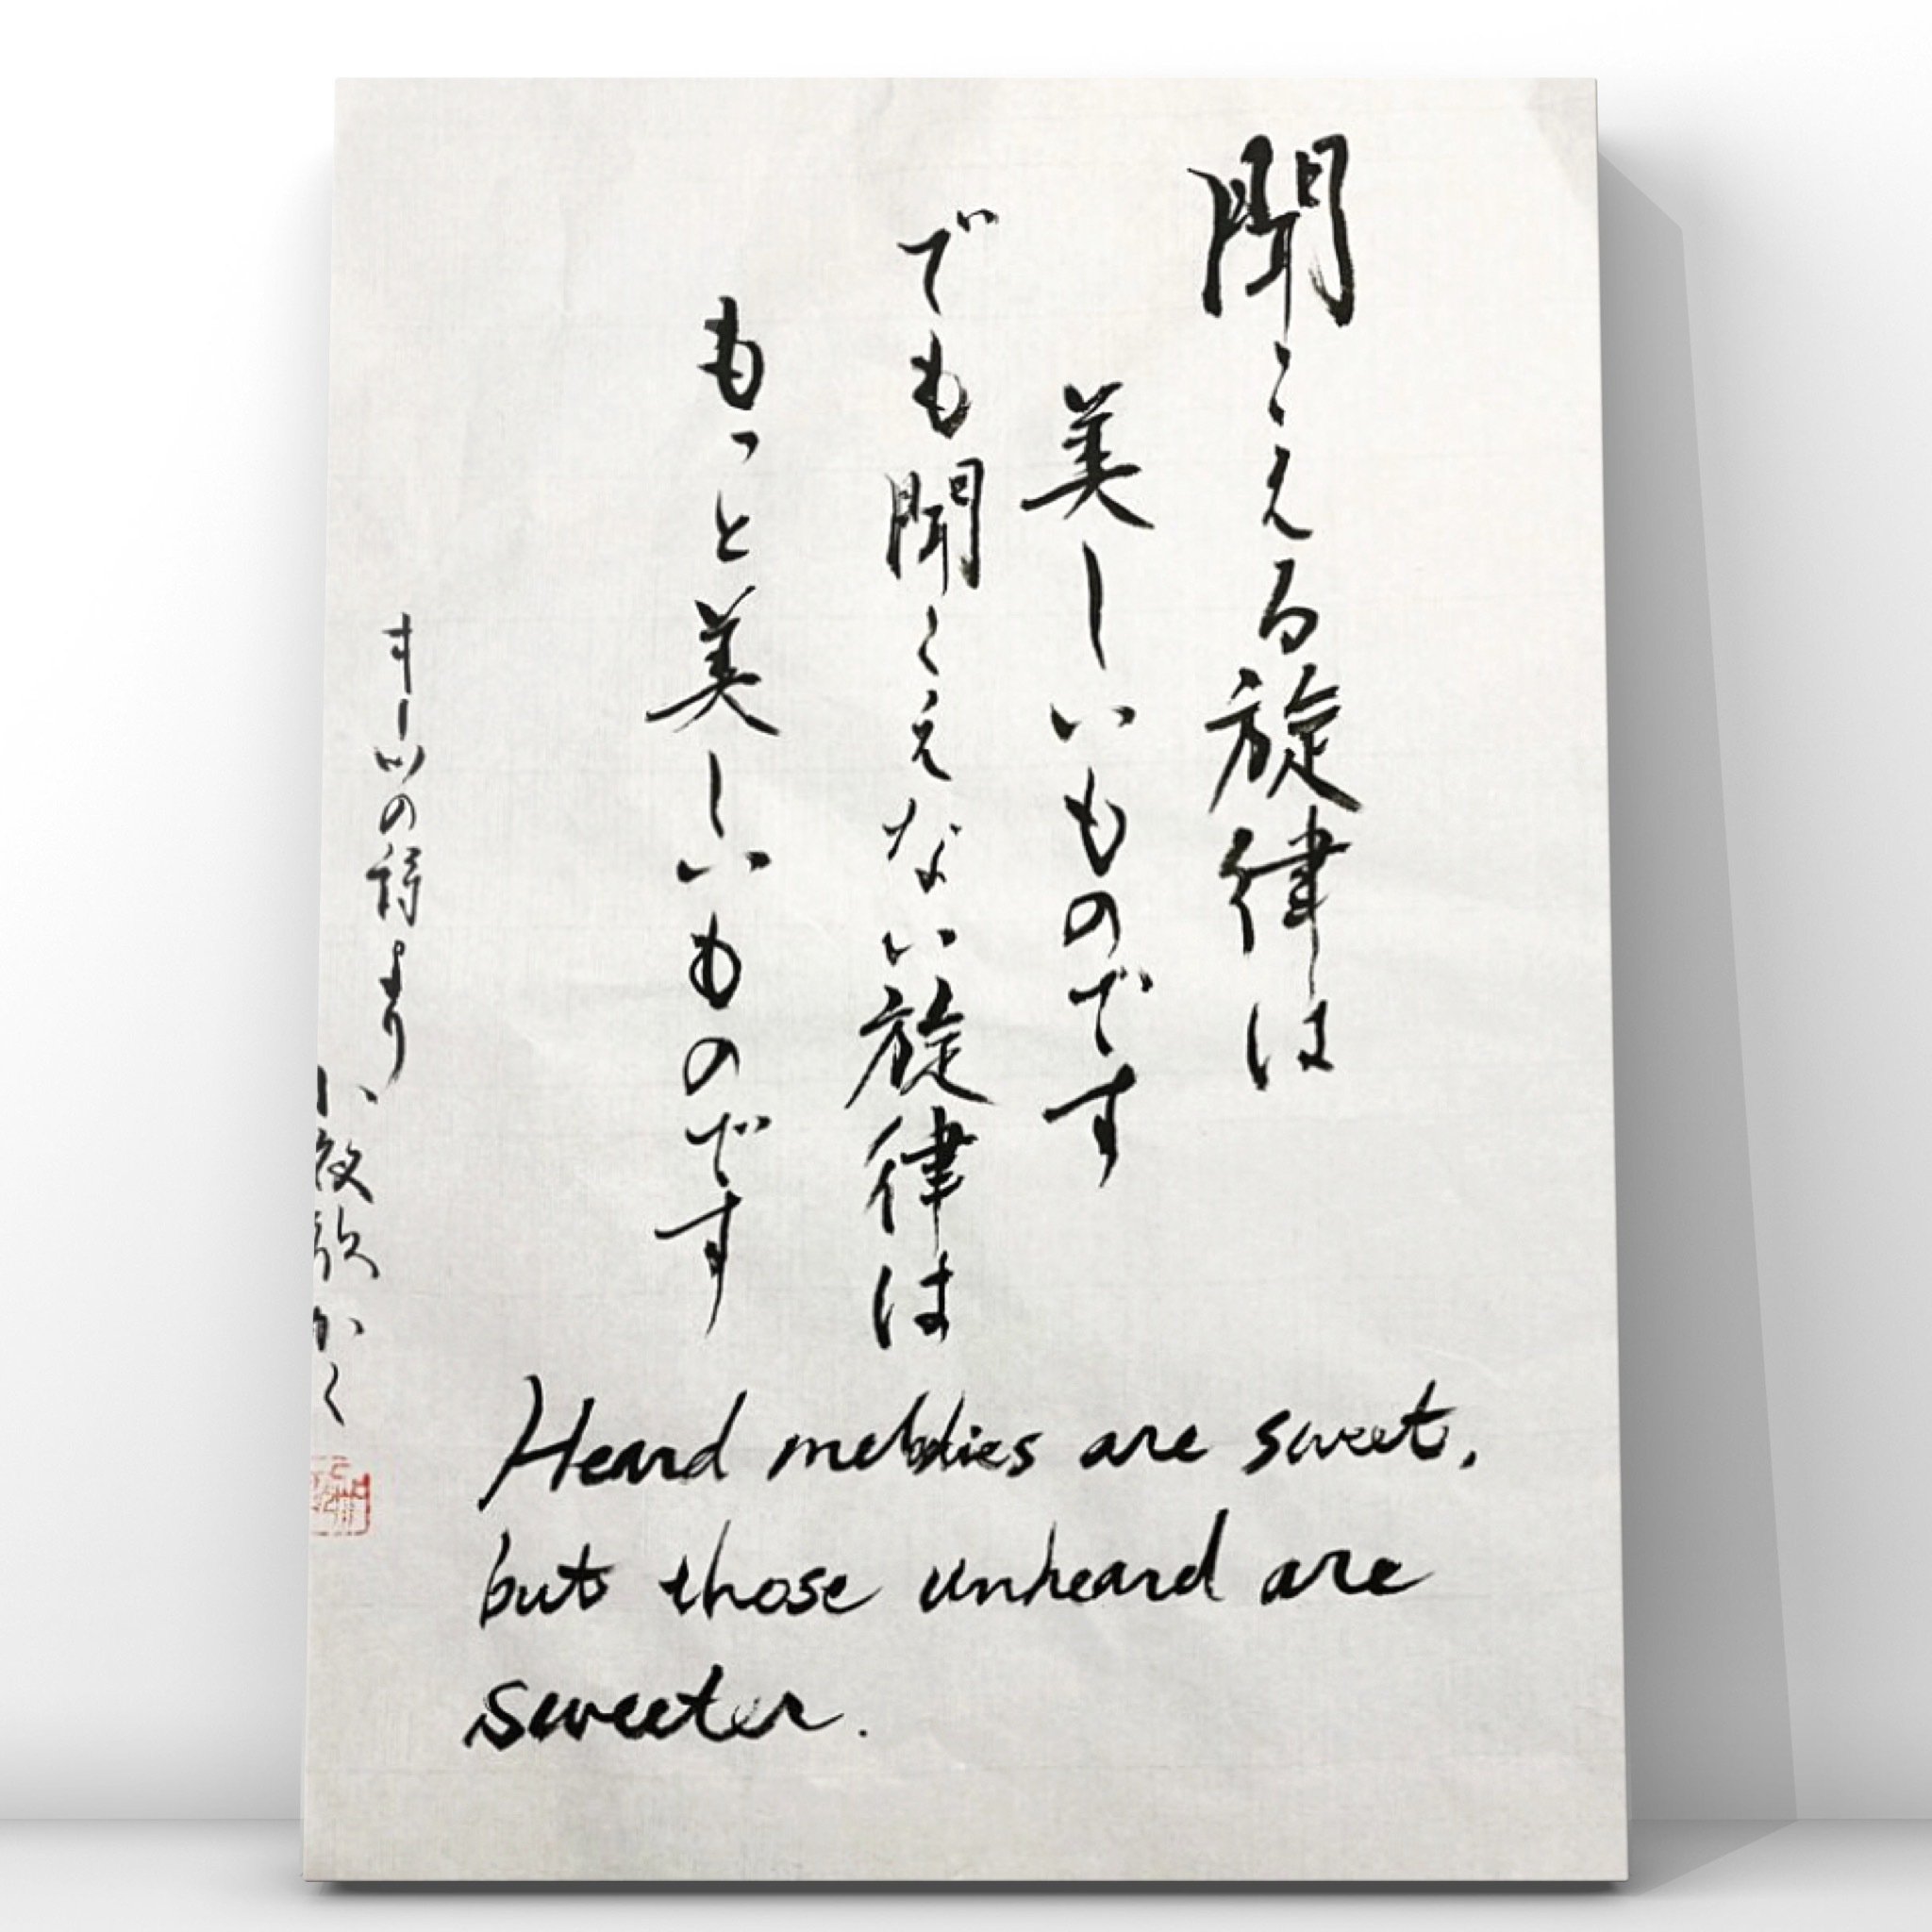 聞こえる旋律は
美しいものです
でも聞こえない旋律は
もっと美しいものです
キーツの詩より
かく
Heard melodies are sweet,
but those unheard are
sweeter.